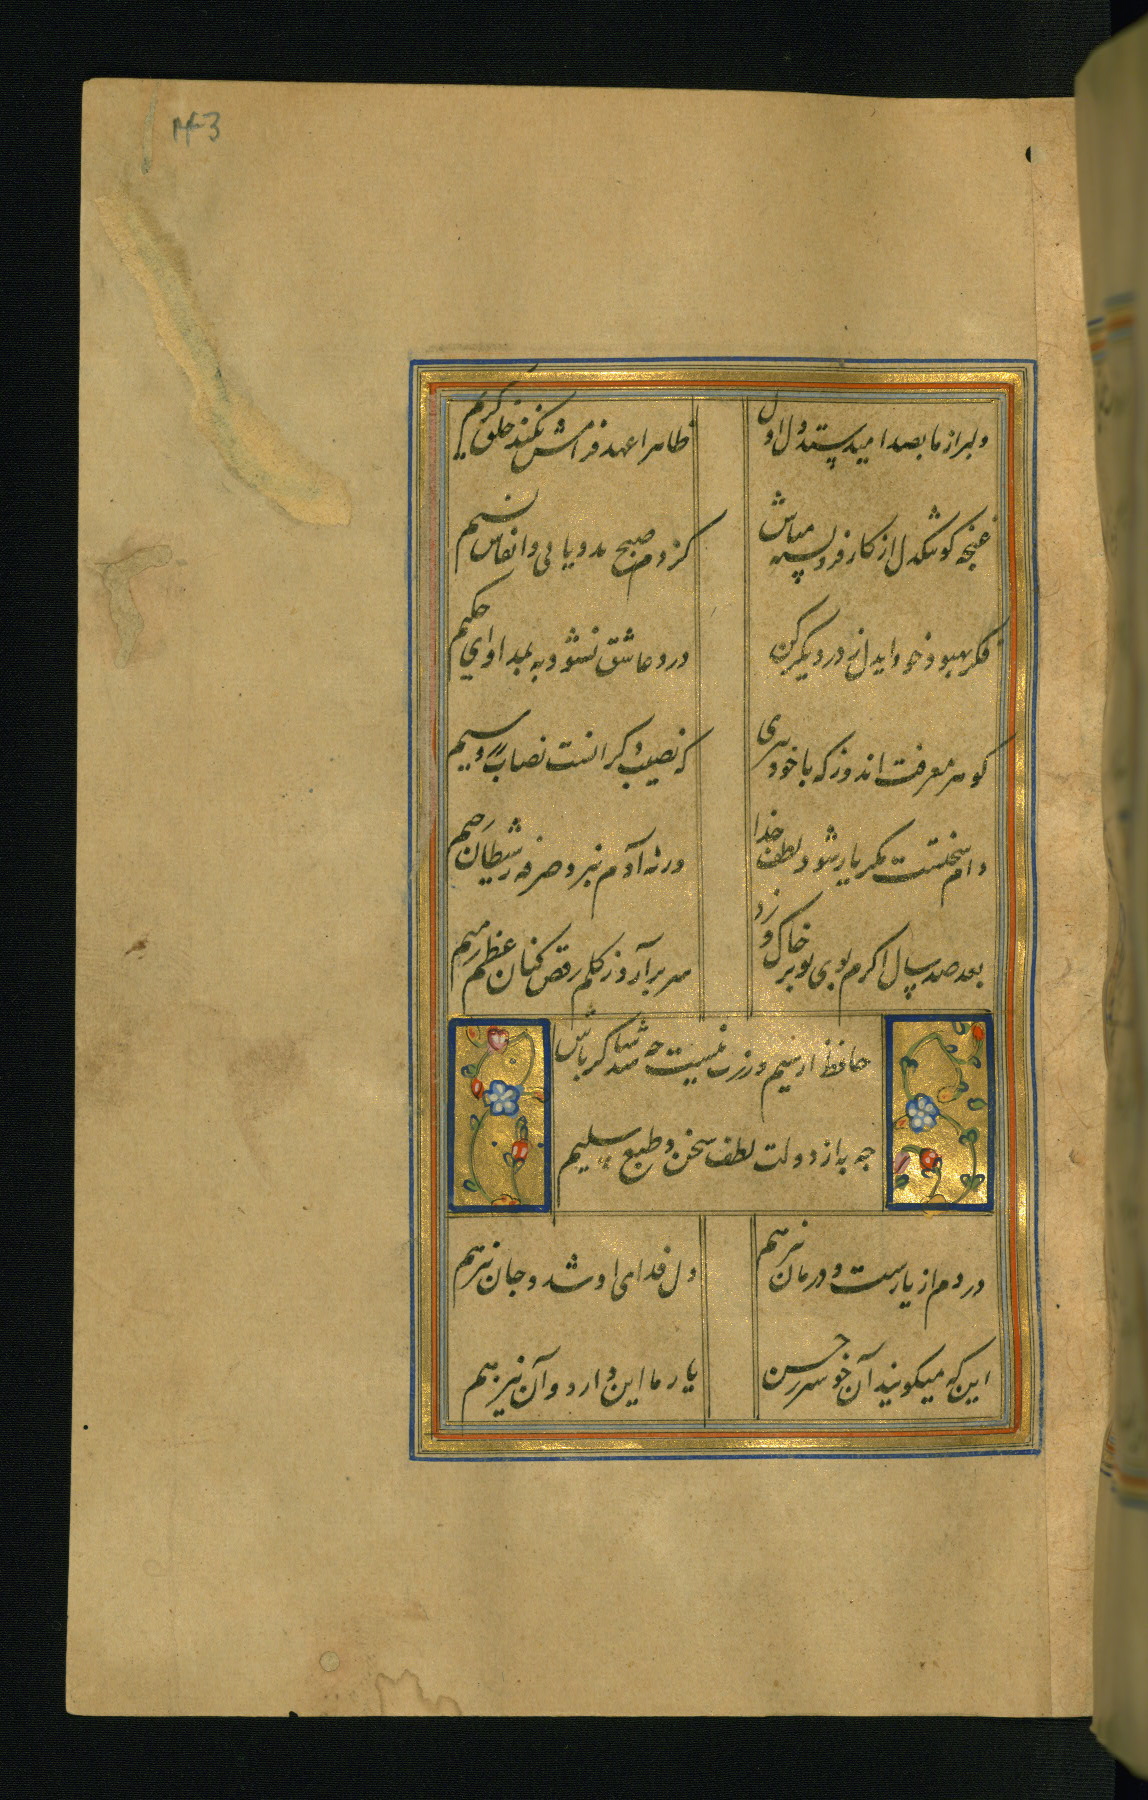 143
دلبر از ما بصد امید ستد اول دل
ظاهرا عهد فرامش نکند خلق کریم
غنچه گو تنگدل از کار فروبسته مباش
کز دم صبح مدد یابی و انفاس نسیم
فکر بهبود خود ایدل ز در دیگر کن
درد عاشق نشود به بمداوای حکیم
گوهر معرفت اندوز که با خود ببری
که نصیب دگرانست نصاب زر و سیم
دام سختست مگر یار شود لطف خدا
ورنه آدم نبرد صرفه ز شیطان رجیم
بعد صد سال اگرم بوی تو بر خاک وزد
سر برآرد ز گلم رقص کنان عظم رمیم
حافظ ار سیم و زرت نیست چه شد شاکر باش
چه به از دولت لطف سخن و طبع سلیم
دردم از یارست و درمان نیز هم
دل فدای او شد و جان نیز هم
این که میگویند آن خوشتر ز حسن
یار ما این دارد و آن نیز هم